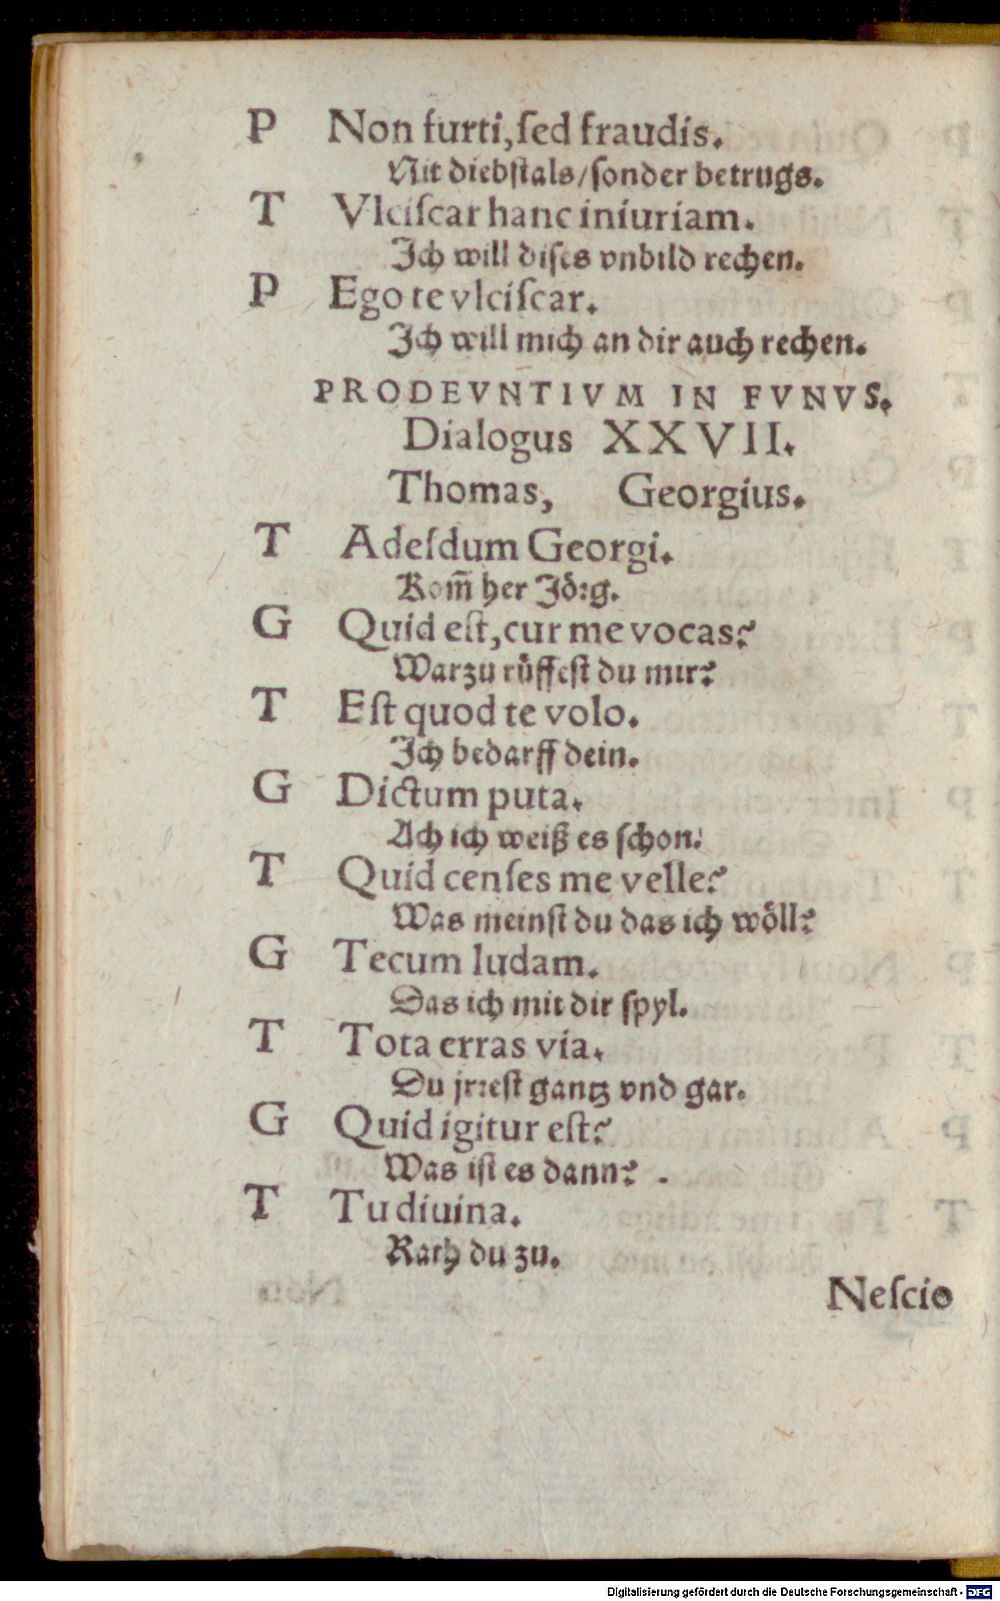 P Non furti, ſed fraudis.
Nit diebſtals/ſonder betrugs.
T Vlciſcar hanc iniuriam.
Ich will diſes vnbild rechen.
P Ego te vlciſcar.
Ich will mich an dir auch rechen.
PRODEVNTIVM IN FVNVS.
Dialogus XXVII.
Thomas, Georgius.
T Adeſdum Georgi.
Kom̄ her Jörg.
G Quid eſt, cur me vocas?
Warzu růffeſt du mir?
T Eſt quod te volo.
Ich bedarff dein.
G Dictum puta.
Ach ich weiß es ſchon.
T Quid cenſes me velle?
Was meinſt du das ich wöll?
G Tecum ludam.
Das ich mit dir ſpyl.
T Tota erras via.
Du jrreſt gantz vnd gar.
G Quid igitur eſt?
Was iſt es dann?
T Tu diuina.
Rath du zu.
Neſcio
Digitalisierung gefördert durch die Deutsche Forschungsgemeinschaft - DFG